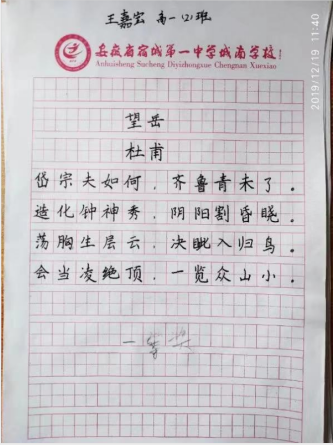 王嘉宝 高一(2)班
安徽省宿城第一中学城南学校
Anhuisheng Sucheng Diyizhongxue Chengnan Xuexiao
2019/12/19 11:40
望岳
杜甫
岱宗夫如何,齐鲁青未了。
造化钟神秀,阴阳割昏晓。
荡胸生层云,决眦入归鸟。
会当凌绝顶,一览众山小。
一等奖